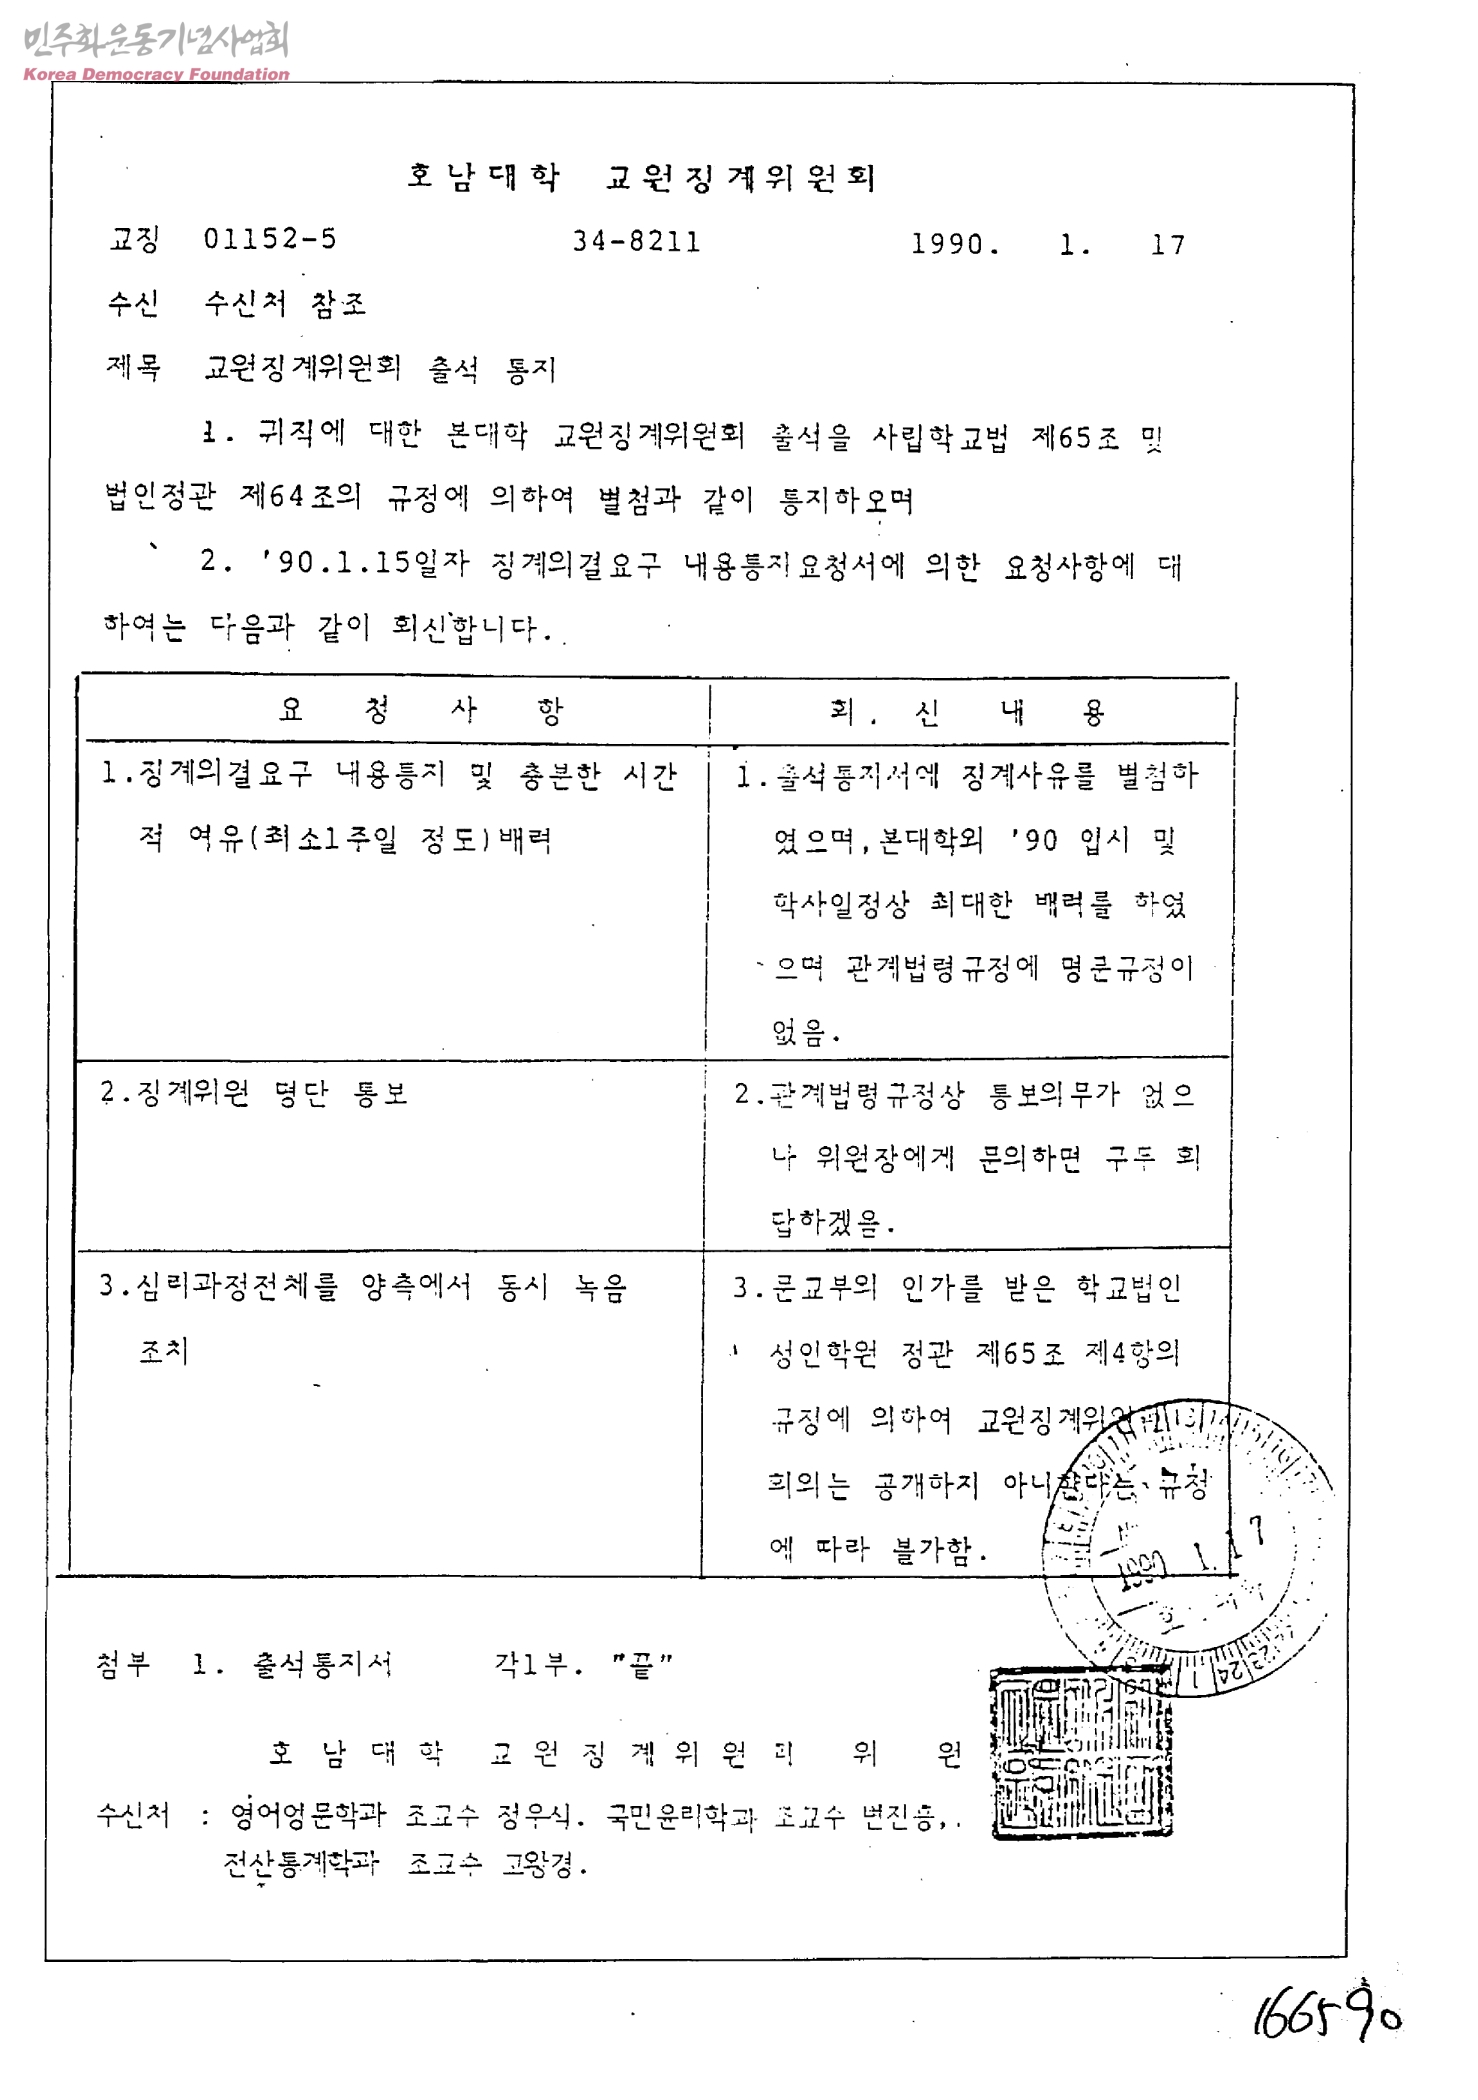 민주화운동기념사업회
Korea Democracy Foundation
호남대학 교원징계위원회
교징 01152-5 34-8211 1990. 1. 17
수신 수신처 참조
제목 교원징계위원회 출석 통지
1. 귀직에 대한 본대학 교원징계위원회 출석을 사립학교법 제65조 및
법인정관 제64조의 규정에 의하여 별첨과 같이 통지하오며
2. '90.1.15일자 징계의결요구 내용통지요청서에 의한 요청사항에 대
하여는 다음과 같이 회신합니다.
요 청 사 항 회 신 내 용
1.징계의결요구 내용통지 및 충분한 시간
적 여유(최소1주일 정도)배려
1.출석통지서에 징계사유를 별첨하
였으며,본대학의 '90 입시 및
학사일정상 최대한 배려를 하였
으며 관계법령규정에 명문규정이
없음.
2.징계위원 명단 통보
2.관계법령규정상 통보의무가 없으
나 위원장에게 문의하면 구두 회
답하겠음.
3.심리과정전체를 양측에서 동시 녹음
조치
3.문교부의 인가를 받은 학교법인
성인학원 정관 제65조 제4항의
규정에 의하여 교원징계위원회
회의는 공개하지 아니한다는 규정
에 따라 불가함.
1990 1. 17
첨부 1. 출석통지서 각1부. "끝"
호남대학 교원징계위원회 위 원
수신처 : 영어영문학과 조교수 정우식. 국민윤리학과 조교수 변진흥,.
전산통계학과 조교수 고왕경.
166590